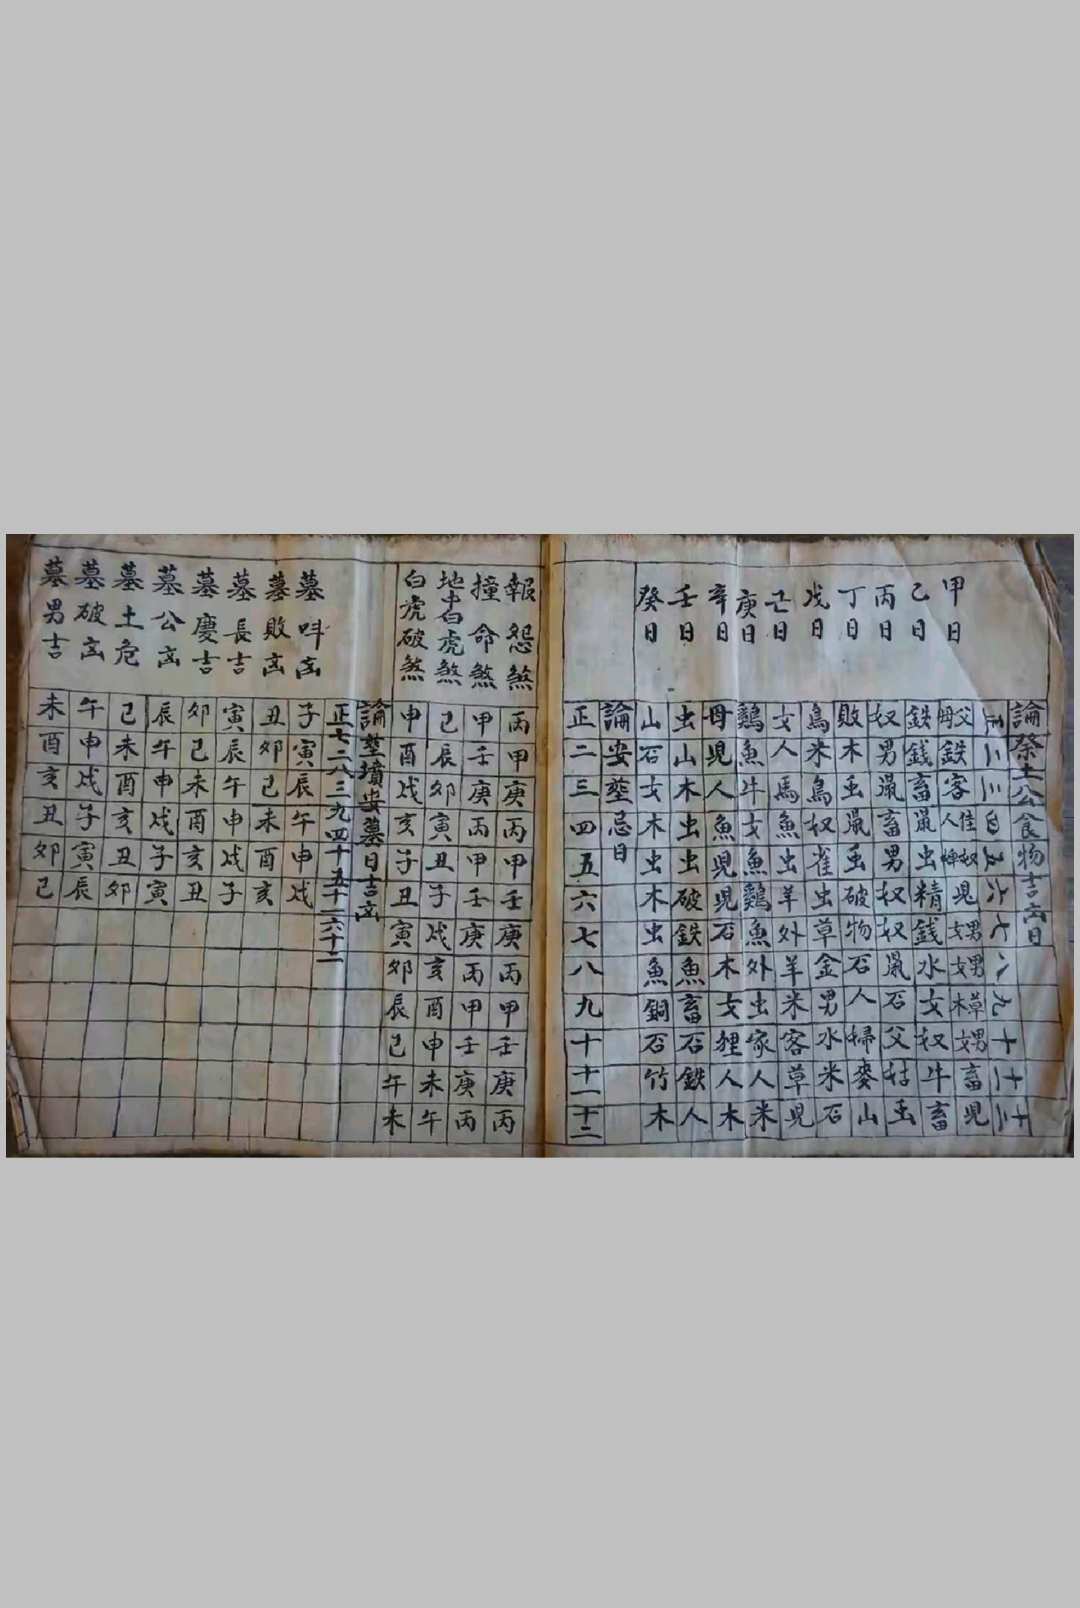 論祭土公食物吉凶日
正二三四五六七八九十十一十二
甲日 父母鉄客佳人奴婢児男女男女草木男女畜児
己日 鉄錢畜鼡虫精錢水女奴牛畜
丙日 奴男鼡畜男奴奴鼡石父牯
丁日 敗木鼡破物石人掃麥山
戊日 鳥米鳥奴雀虫草金男水米石
亡日 女人馬魚虫羊外羊米客草児
庚日 鷄魚牛女魚鷄魚外虫家人米
辛日 母児人魚児児石木女狸人木
壬日 虫山木虫虫破鉄魚畜石鉄人
癸日 山石女木虫木虫魚銅石竹木
論安塟忌日
正二三四五六七八九十十一十二
報怨煞 丙甲庚丙甲壬庚丙甲壬庚丙
撞命煞 甲壬庚丙甲壬庚丙甲壬庚丙
地中白虎煞 己辰卯寅丑子戌亥酉申未午
白虎破煞 申酉戌亥子丑寅卯辰己午未
論塟墳安墓日吉凶
正七二八三九四十五十一六十二
墓呌凶 子寅辰午申戌
墓敗凶 丑卯己未酉亥
墓長吉 寅辰午申戌子
墓慶吉 卯己未酉亥丑
墓公凶 辰午申戌子寅
墓土危 己未酉亥丑卯
墓破凶 午申戌子寅辰
墓男吉 未酉亥丑卯己